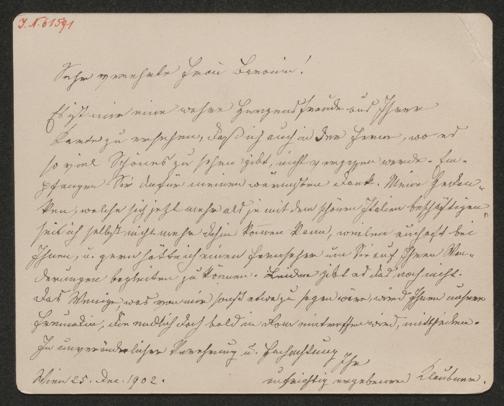 J.N. 61591
Sehr verehrte Frau Baronin!
Es ist mir eine wahre Herzensfreude aus Ihrer
Karte zu ersehen, daß ich auch in der Ferne, wo es
so viel Schönes zu sehen gibt, nicht vergessen werde. Em-
pfangen Sie dafür meinen wärmsten Dank. Meine Gedan-
ken, welche sich jetzt mehr als je mit dem schönen Italien beschäftigen
seit ich selbst nicht mehr dahin kommen kann, weilen oft bei
Ihnen, u. gern hätte ich einen Fernseher um Sie auf Ihren Wan-
derungen begleiten zu können. Leider gibt es das noch nicht.
Das Wenige, was von mir sonst etwa zu sagen wäre, wird Ihnen unsere
Freundin, die endlich doch bald in Rom eintreffen wird, mittheilen.
In unveränderlicher Verehrung u. Hochachtung Ihr
Wien 25. Dec. 1902. aufrichtig ergebener